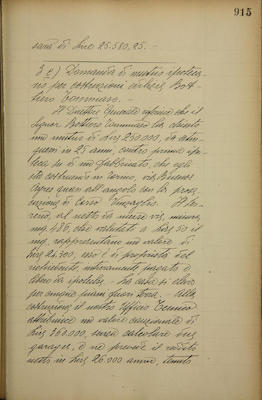 915
sarà di Lire 25.580,25. -
3 c) Domanda di mutuo ipoteca-
rio per costruzioni edilizie Bot-
tiero Commaso. -
Il Direttore Generale informa che il
Signor Bottiero Tommaso ha chiesto
un mutuo di Lire 250.000, da estin-
guersi in 25 anni, contro prima ipo-
teca su di un fabbricato, che egli
sta costruendo in Torino, via Buenos
Ayres quasi all'angolo con la prose-
cuzione di Corso Il ter-
reno, al netto da mq.
mq. 486, che valutato a Lire 50 il
mq. rappresentano un valore di
Lire 24.300, ed è di proprietà del
richiedente, interamente pagato e
libero da ipoteche. - La casa si eleva
per cinque piani fuori terra. - Alla
costruzione il nostro Ufficio Tecnico
attribuisce un valore cauzionale di
Lire 360.000, senza calcolare due
garages, e ne prevede il reddito
netto in Lire 26.000 annue, tenuto